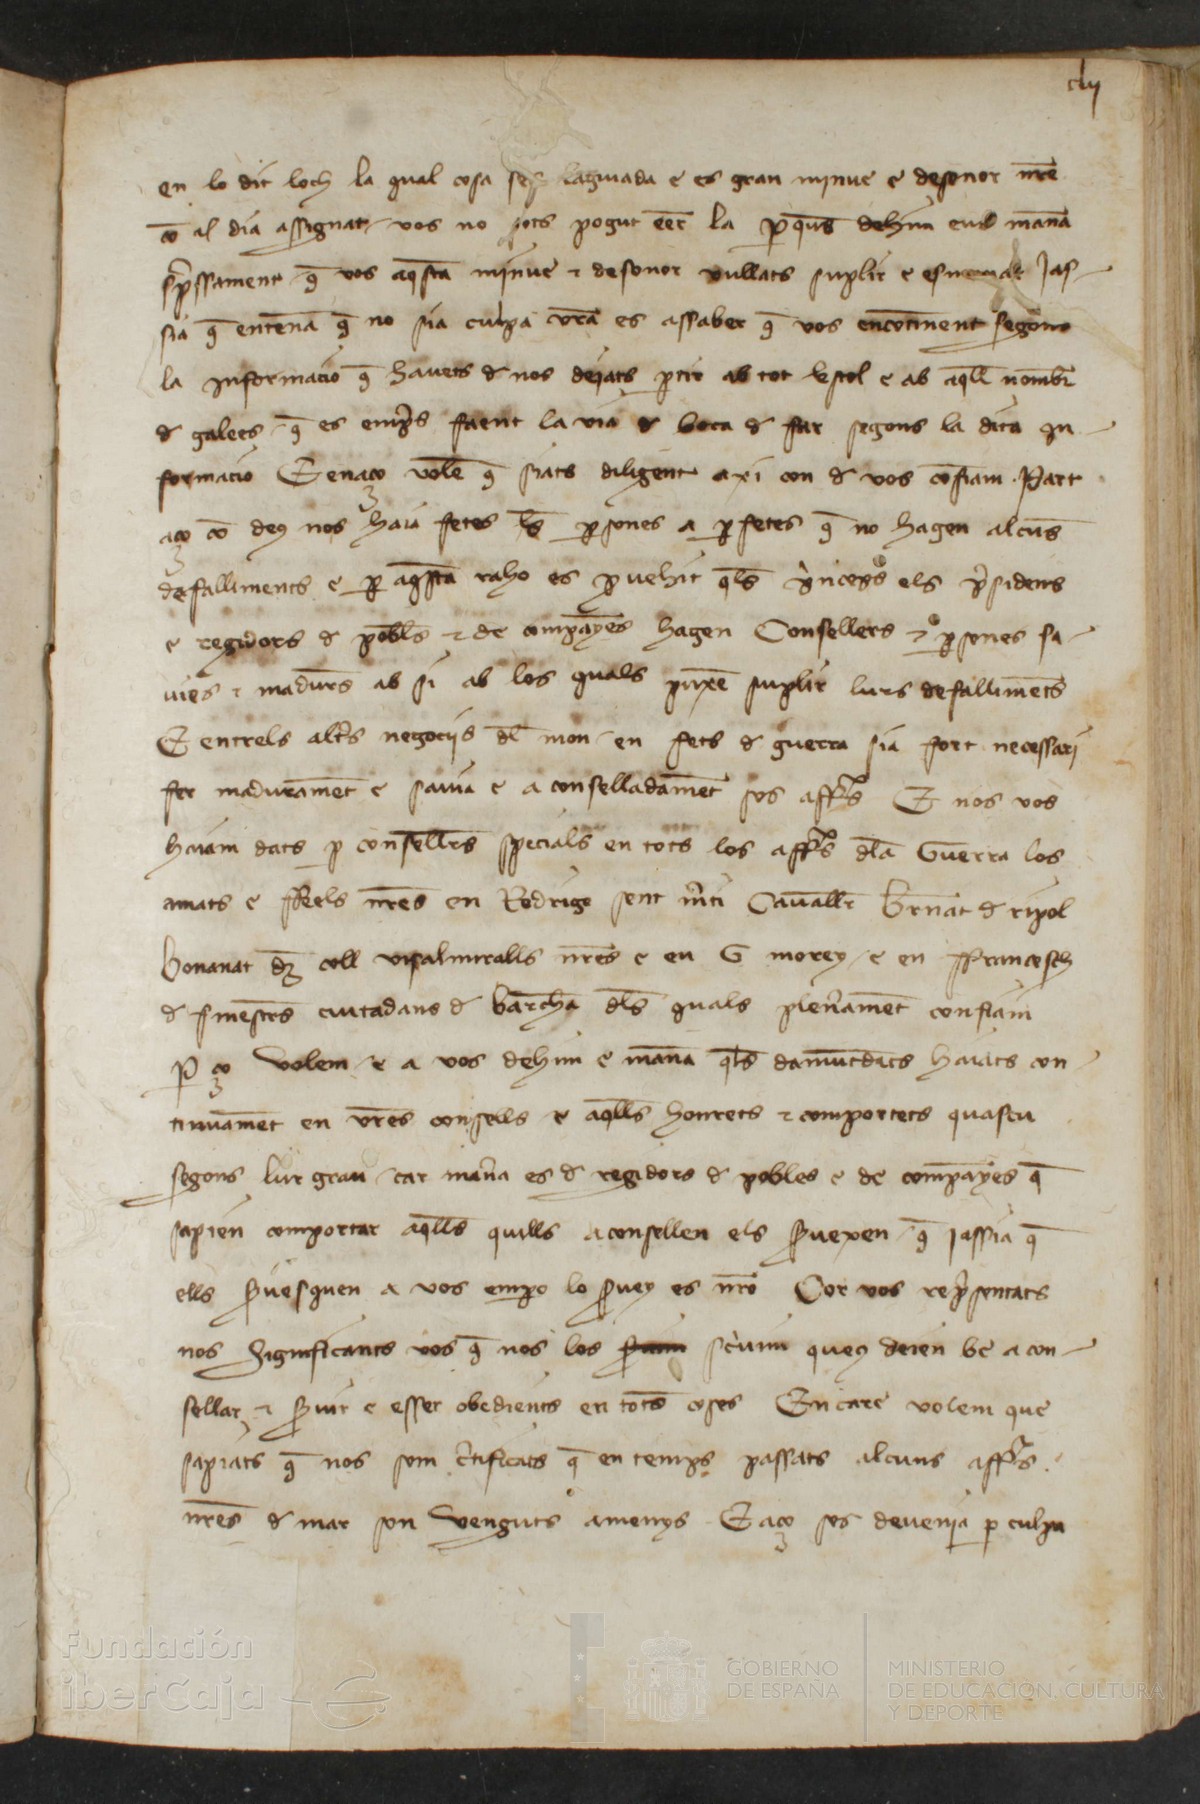 clij
en lo dit loch la qual cosa ses laguiada e es gran minue e desonor nr̄e
cō al dia assignat vos no sots pogut eēr la perq̄us dehim eus manā
sp̄ressament q̄ vos aq̄sta minue e desonor vullats suplir e esmenar Jas-
sia q̄ entenā q̄ no sia culpa vr̄a es assaber q̄ vos encōtinent segons
la informacio q̄ havets d nos dejats ptir ab tot lestol e ab aq̄ll nombr̄
d galees q̄ es emp̄s faent la via d boca d far segons la dita in-
formacio E en aço volē q̄ siats diligent axi con d vos cōfiam Part
aço cō deus nos haia fetes l̄s psones a pfetes q̄ no hagen alcūs
defalliments e p aq̄sta raho es pvehit q̄ls p̄nceps els p̄sidents
e regidors d pobl̄s e de compāyes hagen Consellers e psones sa-
vies e madurs ab si ab los quals puxē suplir lurs defallimēts
E entrels altr̄s negocijs dl̄ mon en fets d guerra sia fort necessari
fer maduramēt e savia e aconselladamēt sos aff̄rs E nos vos
haiam dats p conselles specials en tots los aff̄rs dl̄a Guerra los
amats e ffeels nr̄es en Rodrigo sent m̄ti Cavallr̄ br̄nat d ripol
bonanat dez coll visalmiralls nr̄es e en G morey e en ffrancesch
d finestr̄s ciutadans d barch̄a dl̄s quals plen̄amēt confiam
P ço Volem e a vos dehim e manā q̄ls damūtdāts haiats con-
tinuamēt en vr̄es consells e aq̄lls honrets e comportets quascu
segons lur grau car man̄a es d regidors d pobles e de compāyes q̄
sapien comportar aq̄lls quills aconsellen els s̄vexen q̄ jassia q̄
ells s̄vesquen a vos empo lo s̄vey es nr̄o Cor vos rep̄sentats
nos Significants vos q̄ nos los s̄vim sc̄vim queus deien be acon-
sellar e s̄vir e esser obedients en totes coses Encare volem que
sapiats q̄ nos som c̄tificats q̄ en temps passats alcuns aff̄rs
nr̄es d mar son Venguts amenys E aço ses devenia p culpa
Fundación
iberCaja
GOBIERNO
DE ESPAÑA
MINISTERIO
DE EDUCACIÓN, CULTURA
Y DEPORTE